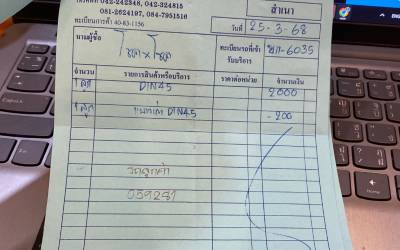 โทรศัพท์ 042-242348, 042-324815
081-2624197, 084-7951516
ทะเบียนการค้า 40-83-1156
สำเนา
วันที่ 25-3-68
นามผู้ซื้อ
ทะเบียนรถที่เข้า
รับบริการ -6035
จำนวน รายการสินค้าหรือบริการ ราคาต่อหน่วย จำนวนเงิน
1 ลูก DIN45 2000
1 ลูก แบตเก่า DIN45 -200
รถลูกค้า